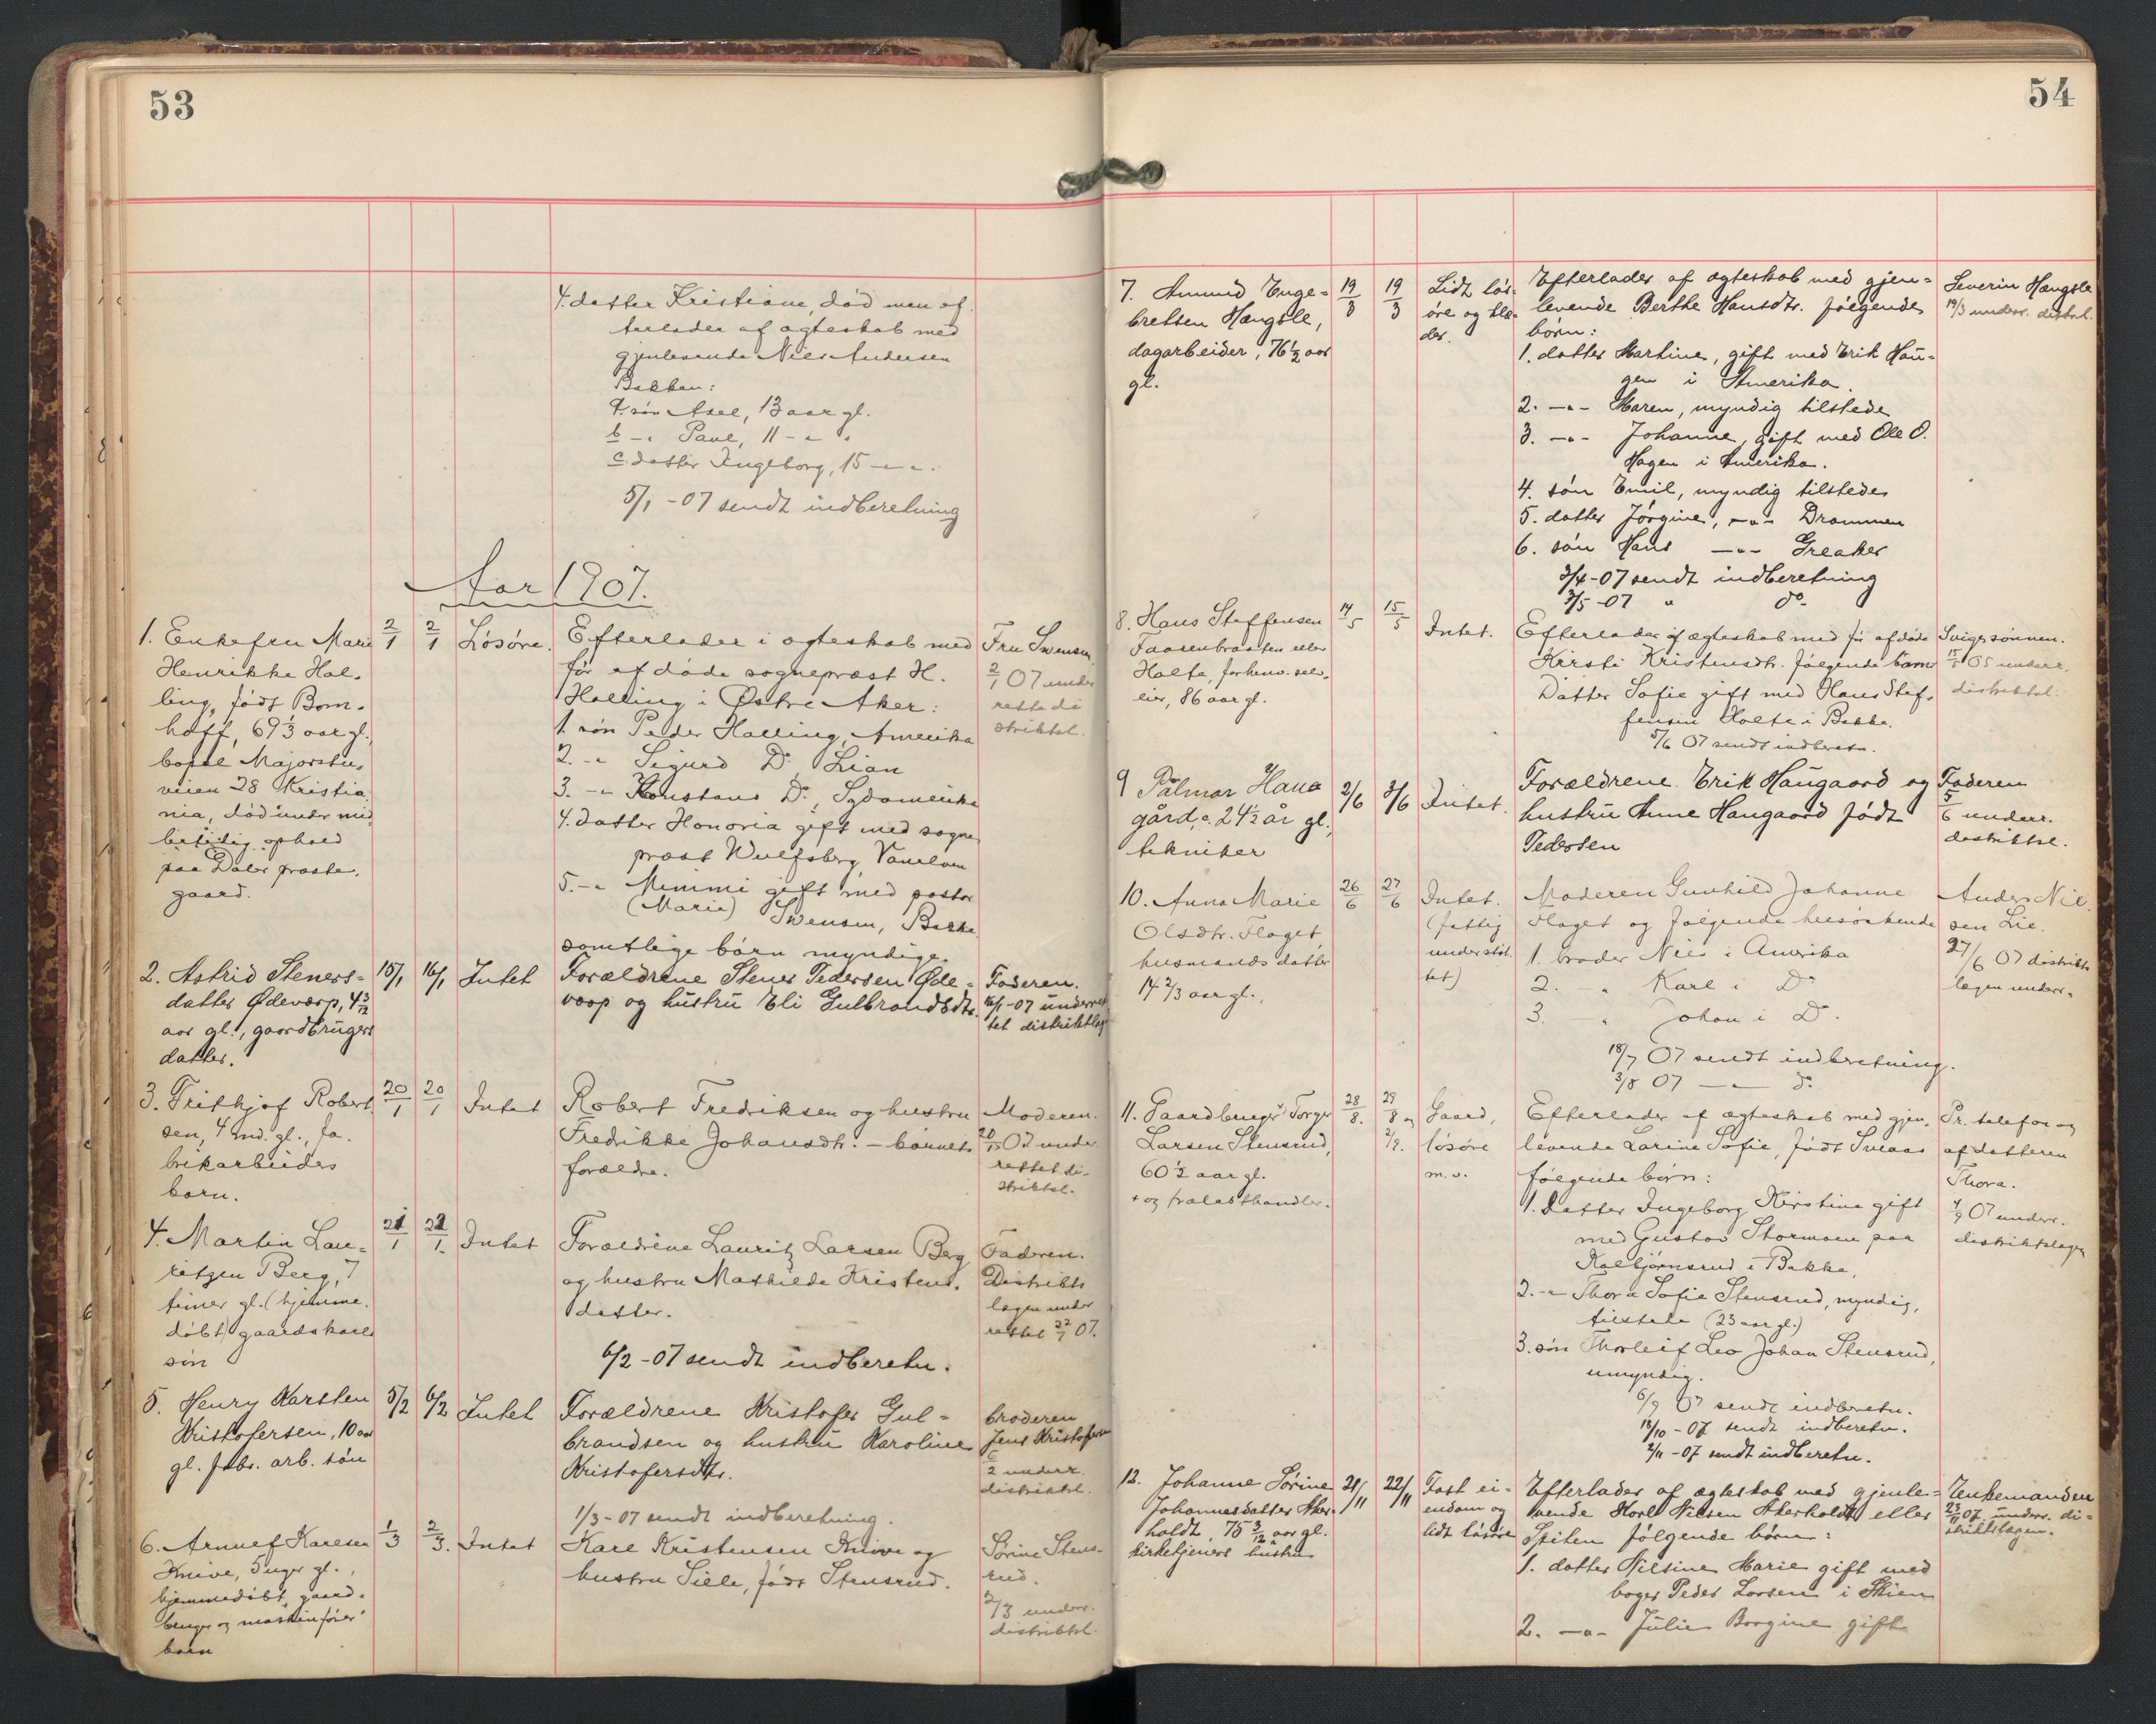 53
4. datter Kristiane, død men ef-
terlader af ægteskab med
gjenlevende Niels Andersen
Bakken:
a. søn Axel, 13 aar gl.
b -"- Paul, 11 -"-
c. datter Ingeborg, 15 -"-
5/1 -07 sendt indberetning
Aar 1907.
1. Enkefru Marie
Henrikke Hal-
ling, født Born-
hoff, 69 1/3 aar gl.,
bopæl Majorstu-
veien 28 Kristia-
nia, død under mid-
lertidig ophold
paa Dalen præste-
gaard.
2/1
2/1
Løsøre.
Efterlader i ægteskab med
før afdøde sogneprest H.
Halling i Østre Aker:
1. søn Peder Halling, Amerika
2. -"- Sigurd Do, Lian
3. -"- Konstans Do, Sydamerika
4. datter Honoria gift med sogne-
præst Wulfsberg, Vanelven
5. -"- Mimmi gift med pastor
(Marie) Swensen, Bakke
samtlige børn myndige.
Fru Swensen
2/1 07 under-
rettet di-
striktsl.
2. Astrid Steners-
datter Ødevorp, 4 3/12
aar gl., gaardbrugers
datter.
15/1
16/1
Intet
Forældrene Stener Pedersen Øde-
vorp og hustru Eli Gulbrandsdtr.
Faderen.
16/1 -07 underret-
tet distriktslæg
3. Frithjof Robert-
sen, 4 md. gl., fa-
brikarbeiders
barn.
20/1
20/1
Intet
Robert Fredriksen og hustru
Fredrikke Johansdtr. - barnets
forældre.
Moderen.
20/1 07 under-
rettet di-
striktsl.
4. Martin Lau-
ritzen Berg, 7
timer gl. (hjemme-
døbt) gaardskarls
søn
21/1
22/1.
Intet
Forældrene Lauritz Larsen Berg
og hustru Mathilde Kristens-
datter.
6/2 -07 sendt indberetn.
Faderen.
Distrikts-
lægen under-
rettet 22/1 07.
5. Henry Karsten
Kristofersen, 10 aar
gl. fabr. arb. søn
5/2
6/2
Intet
Forældrene Kristofer Gul-
brandsen og hustru Karoline
Kristofersdtr.
1/3 -07 sendt indberetning.
broderen
Jens Kristofersen
6/2 underr.
distriktsl.
6. Arnulf Karlsen
Knive, 5 uger gl.,
hjemmedøbt, gaard-
bruger og maskinfører
barn
1/3
2/3.
Intet
Karl Kristensen Knive og
hustru Sille, født Stensrud.
Sørine Stens-
rud.
2/3 underr.
distriktsl.
54
7. Amund Enge-
bretsen Hængsle,
dagarbeider, 76 1/2 aar
gl.
19/3
19/3
Lidt løs-
øre og klæ-
der.
Efterlader af ægteskab med gjen-
levende Berthe Hansdtr. følgende
børn:
1. datter Martine, gift med Erik Hau-
gen i Amerika.
2. -"- Maren, myndig tilstede
3. -"- Johanne, gift med Ole O.
Hagen i Amerika.
4. søn Emil, myndig tilstede
5. datter Jørgine, -"- Drammen
6. søn Hans -"- Greaker
3/4 -07 sendt indberetning
3/5 -07 " do-
Severin Hængsle
19/3 underr. distrl.
8. Hans Steffensen
Faasenbraaten eller
Holte, forhenv. selv-
eier, 86 aar gl.
14/5
15/5
Intet.
Efterlader af ægteskab med før afdøde
Kirsti Kristensdtr. følgende barn
Datter Sofie gift med Hans Stef-
fensen Holte i Bakke.
5/6 07 sendt indberetn.
Svigersønnen.
15/5 05 underr.
distriktsl.
9 Palmar Haua-
gård, 24 1/2 år gl.,
tekniker
2/6
3/6
Intet.
Forældrene Erik Haugaard og
hustru Anne Haugaard født
Pedersen
Faderen
5/6 underr.
distriktsl.
10. Anna Marie
Olsdtr. Flaget
husmandsdatter
14 2/3 aar gl.,
26/6
27/6
Intet.
(fattig
understøt-
tet)
Moderen Gunhild Johanne
Flaget og følgende helsøskende
1. broder Niels i Amerika
2. -"- Karl i Do
3. -"- Johan i Do.
18/7 07 sendt indberetning.
3/8 07 -"- do.
Anders Niel-
sen Lie.
27/6 07 distrikts-
lægen underr.
11. Gaardbruger Torger
Larsen Stensrud,
60 1/2 aar gl.
+ og trælasthandler.
28/8.
29/8 og
2/9.
Gaard,
løsøre
m.v.
Efterlader af ægteskab med gjen-
levende Larine Sofie, født Sveaas
følgende børn:
1. Datter Ingeborg Kirstine gift
med Gustav Stormoen paa
Kolbjørnsrud i Bakke,
2. -"- Thora Sofie Stensrud, myndig,
tilstede (23 aar gl.)
3. søn Thorleif Leo Johan Stensrud,
umyndig.
6/9 07 sendt indberetn.
18/10 -07 sendt indberetn.
2/11 -07 sendt indberetn.
Pr. telefon og
af datteren
Thora.
4/9 07 underr.
distriktslægen
12. Johanne Sørine
Johannesdatter Aker-
holdt, 75 3/12 aar gl.
kirketjeners hustru
21/11
22/11
Fast ei-
endom og
lidt løsøre
Efterlader af ægteskab med gjenle-
vende Horl Nilsen Akerholdt eller
Spiten følgende børn:
1. datter Nilsine Marie gift med
bager Peder Larsen i Skien
2. -"- Julie Borgine gift
Enkemanden
23/11 07. underr. di-
striktslægen.